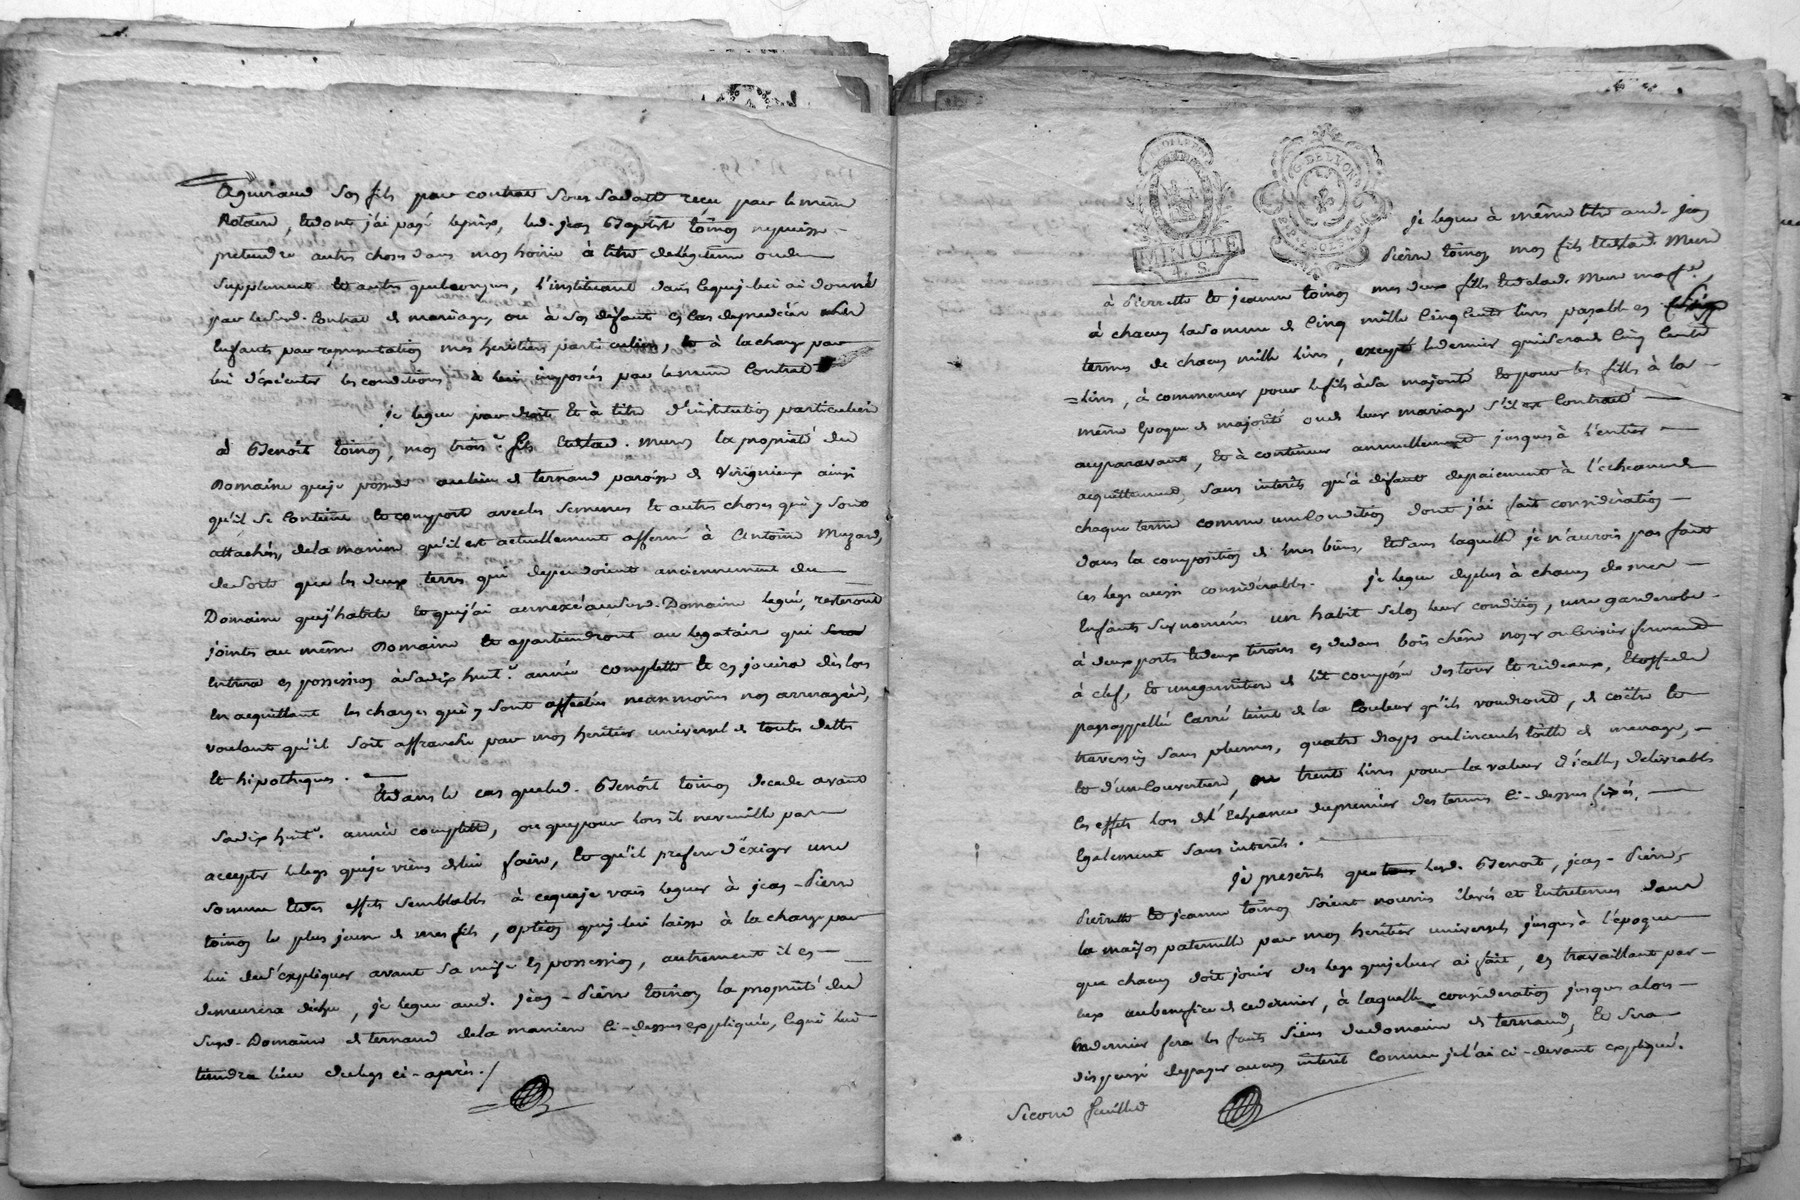 Aguiraud son fils par contrat sous sa datte reçu par le même
Notaire, et dont j'ai payé le prix, led. jean Baptiste toinon ne puisse
pretendre autres choses dans mon hoirie à titre de legitime ou de
supplement et autres quelconques, l'instituant dans ce que je lui ai donné
par le susd. Contrat de mariage, ou à son défaut et cas de predeces ses
Enfants par representation mes heritiers particuliers, et à la charge par
lui d'executer les conditions à lui imposées par le même Contrat
je legue par droit et à titre d'institution particuliere
à Benoît toinon, mon troise. fils et de lad. Mure la proprieté du
Domaine que je possede au lieu de ternaud paroisse de Verignieux ainsi
qu'il se Contient et comporte avec les semences et autres choses qui y sont
attachées, de la maniere qu'il est actuellement affermé à Antoine Muzard,
de sorte que les deux terres qui dependoient anciennement du
Domaine que j'habite et que j'ai annexé au susd. Domaine legué, resteront
joints au même Domaine et appartiendront au legataire qui
Entrera en possession à sa dix huite. année complette et en jouira dès lors
En acquittant les charges qui y sont affectées neanmoins non arreragées,
voulant qu'il soit affranchi par mon heritier universel de toutes dettes
et hipotheques.
Et dans le cas que led. Benoît toinon decede avant
sa dix huite. année complette, ou que pour lors il ne veuille pas
accepter le legs que je viens de lui faire, et qu'il prefere d'éxiger une
somme et des effets semblables à ce que je vais leguer à jean-Pierre
toinon le plus jeune de mes fils, option que je lui laisse à la charge par
lui de s'expliquer avant sa mise en possession, autrement il en
demeurera déchu, je legue aud. jean-Pierre toinon la proprieté du
susd. Domaine de ternaud de la maniere ci-dessus expliquée, lequel lui
tiendra lieu du legs ci-après./
G. DE LYON
MINUTE
4. S.
je legue à même titre aud. jean
Pierre toinon, mon fils et de lad. Mure
à Pierrette et jeanne toinon mes deux filles et de lad. Mure ma fe.,
à chacun la somme de Cinq mille Cinq Cents livres payable en
termes de chacun mille livres, excepté le dernier qui sera de Cinq Cents
livres, à commencer pour le fils à sa majorité et pour les filles à la
même Epoque de majorité ou de leur mariage s'il est Contracté
auparavant, et à continuer annuellement jusques à l'entier
acquittement, sans interêts qu'à défaut de paiement à l'echeance de
chaque terme comme une Condition dont j'ai fait consideration
dans la composition de mes biens, et sans laquelle je n'aurois pas fait
ces legs aussi considerables. je legue de plus à chacun de mes
Enfants susnommés un habit selon leur condition, une garderobe
à deux portes et deux tiroirs en dedans bois chêne noyer ou cerisier fermant
à clef, et une garniture de lit composée des tour et rideaux, Etoffe du
pays appellée Carré teint de la Couleur qu'ils voudront, de coëtre et
traversin sans plumes, quatre draps ou linceuls toille de menage,
et d'une Couverture, ou trente livres pour la valeur d'icelle, delivrables
les effets lors de l'Echeance du premier des termes ci-dessus fixés,
Egalement sans interêts.
je prescris que lesd. Benoit, jean-Pierre,
Pierrette et jeanne toinon soient nourris élevés et Entretenus dans
la maison paternelle par mon heritier universel jusques à l'époque
que chacun doit jouir des legs que je leur ai fait, en travaillant par
eux au benefice de ce dernier, à laquelle consideration jusques alors
Ce dernier fera les fruits siens du domaine de ternaud, et sera
dispensé de payer aucun interêt comme je l'ai ci-devant expliqué.
Second feuillet